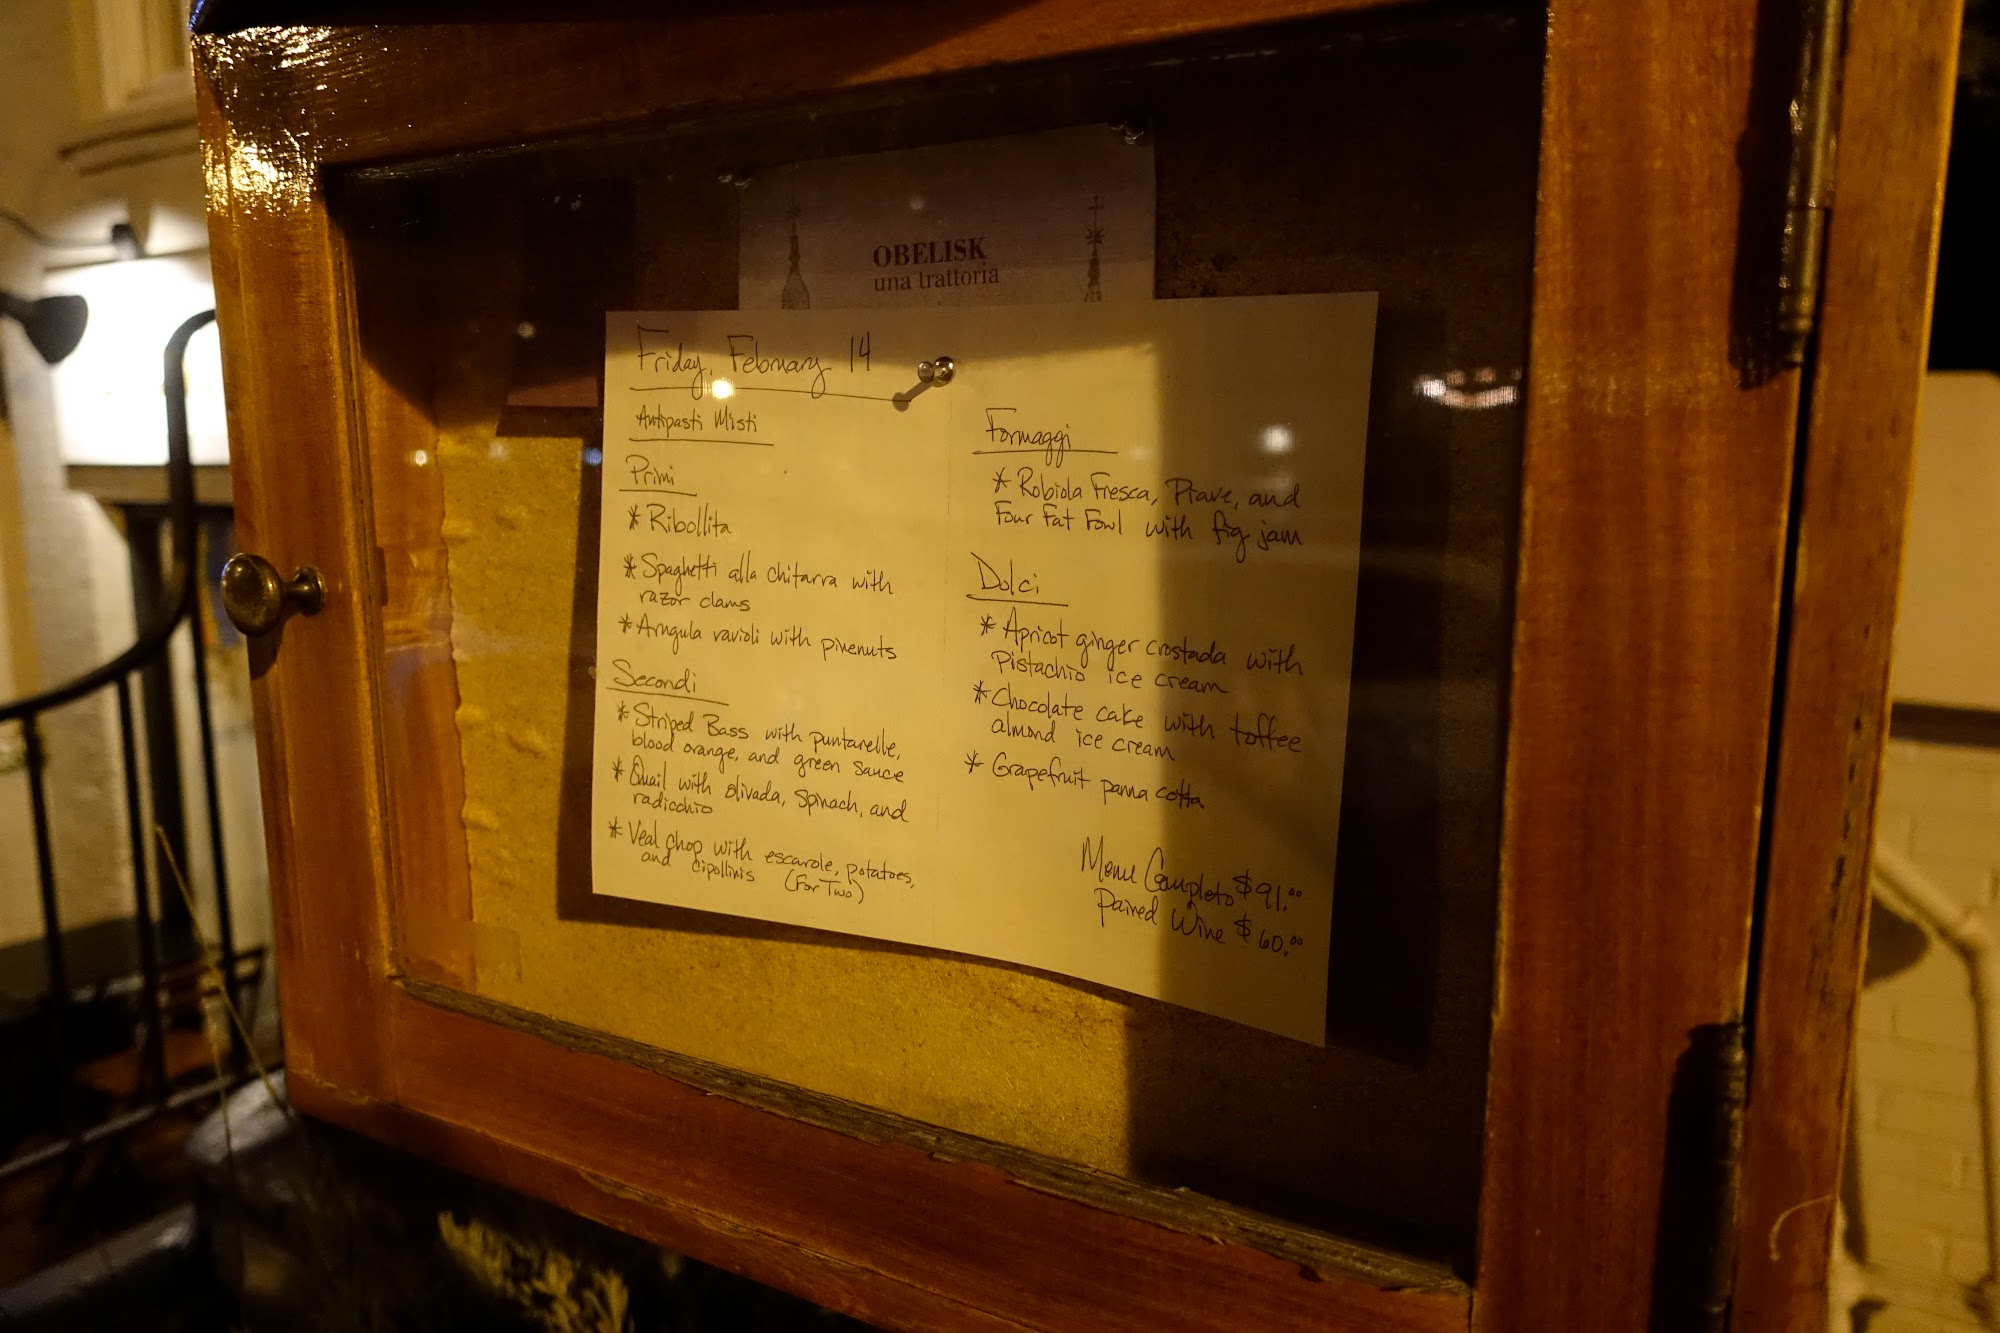 OBELISK
una trattoria
Friday, February 14
Antipasti Misti
Primi
* Ribollita
* Spaghetti alla chitarra with
razor clams
* Arugula ravioli with pinenuts
Secondi
* Striped Bass with puntarelle,
blood orange, and green sauce
* Quail with olivada, spinach, and
radicchio
* Veal chop with escarole, potatoes,
and cipollinis (For Two)
Formaggi
* Robiola Fresca, Piave, and
Four Fat Fowl with fig jam
Dolci
* Apricot ginger crostada with
Pistachio ice cream
* Chocolate cake with toffee
almond ice cream
* Grapefruit panna cotta
Menu Completo $91.00
Paired Wine $60.00